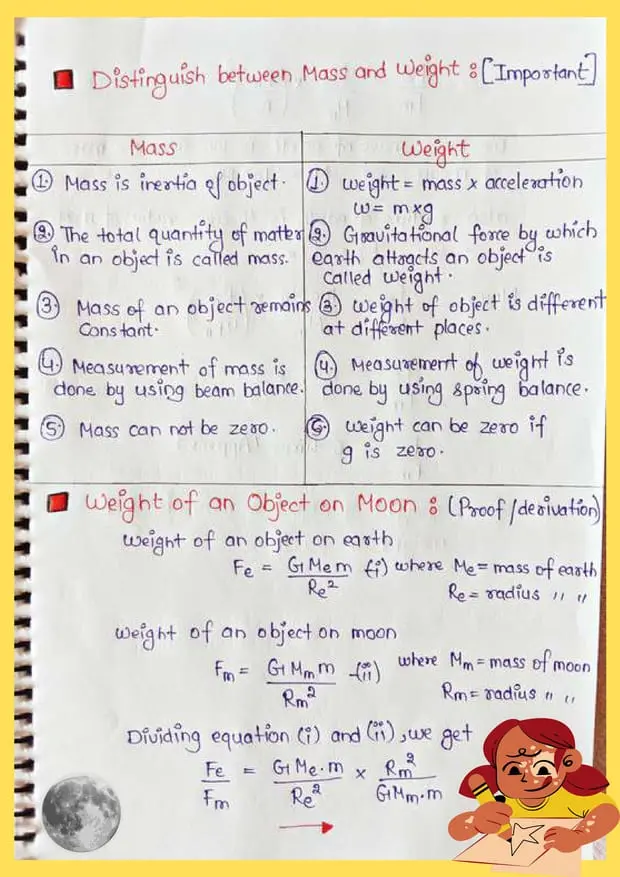 Distinguish between Mass and Weight : [Important]
Mass
① Mass is inertia of object.
② The total quantity of matter
in an object is called mass.
③ Mass of an object remains
Constant.
④ Measurement of mass is
done by using beam balance.
⑤ Mass can not be zero.
Weight
① Weight = mass × acceleration
W = m×g
② Gravitational force by which
earth attracts an object is
called weight.
③ Weight of object is different
at different places.
④ Measurement of weight is
done by using spring balance.
⑤ Weight can be zero if
g is zero.
Weight of an Object on Moon : (Proof/derivation)
Weight of an object on earth
Fe = G Me m / Re² -(i) where Me = mass of earth
Re = radius " "
Weight of an object on moon
Fm = G Mm m / Rm² -(ii) where Mm = mass of moon
Rm = radius " "
Dividing equation (i) and (ii), we get
Fe / Fm = G Me·m / Re² × Rm² / G Mm·m
→